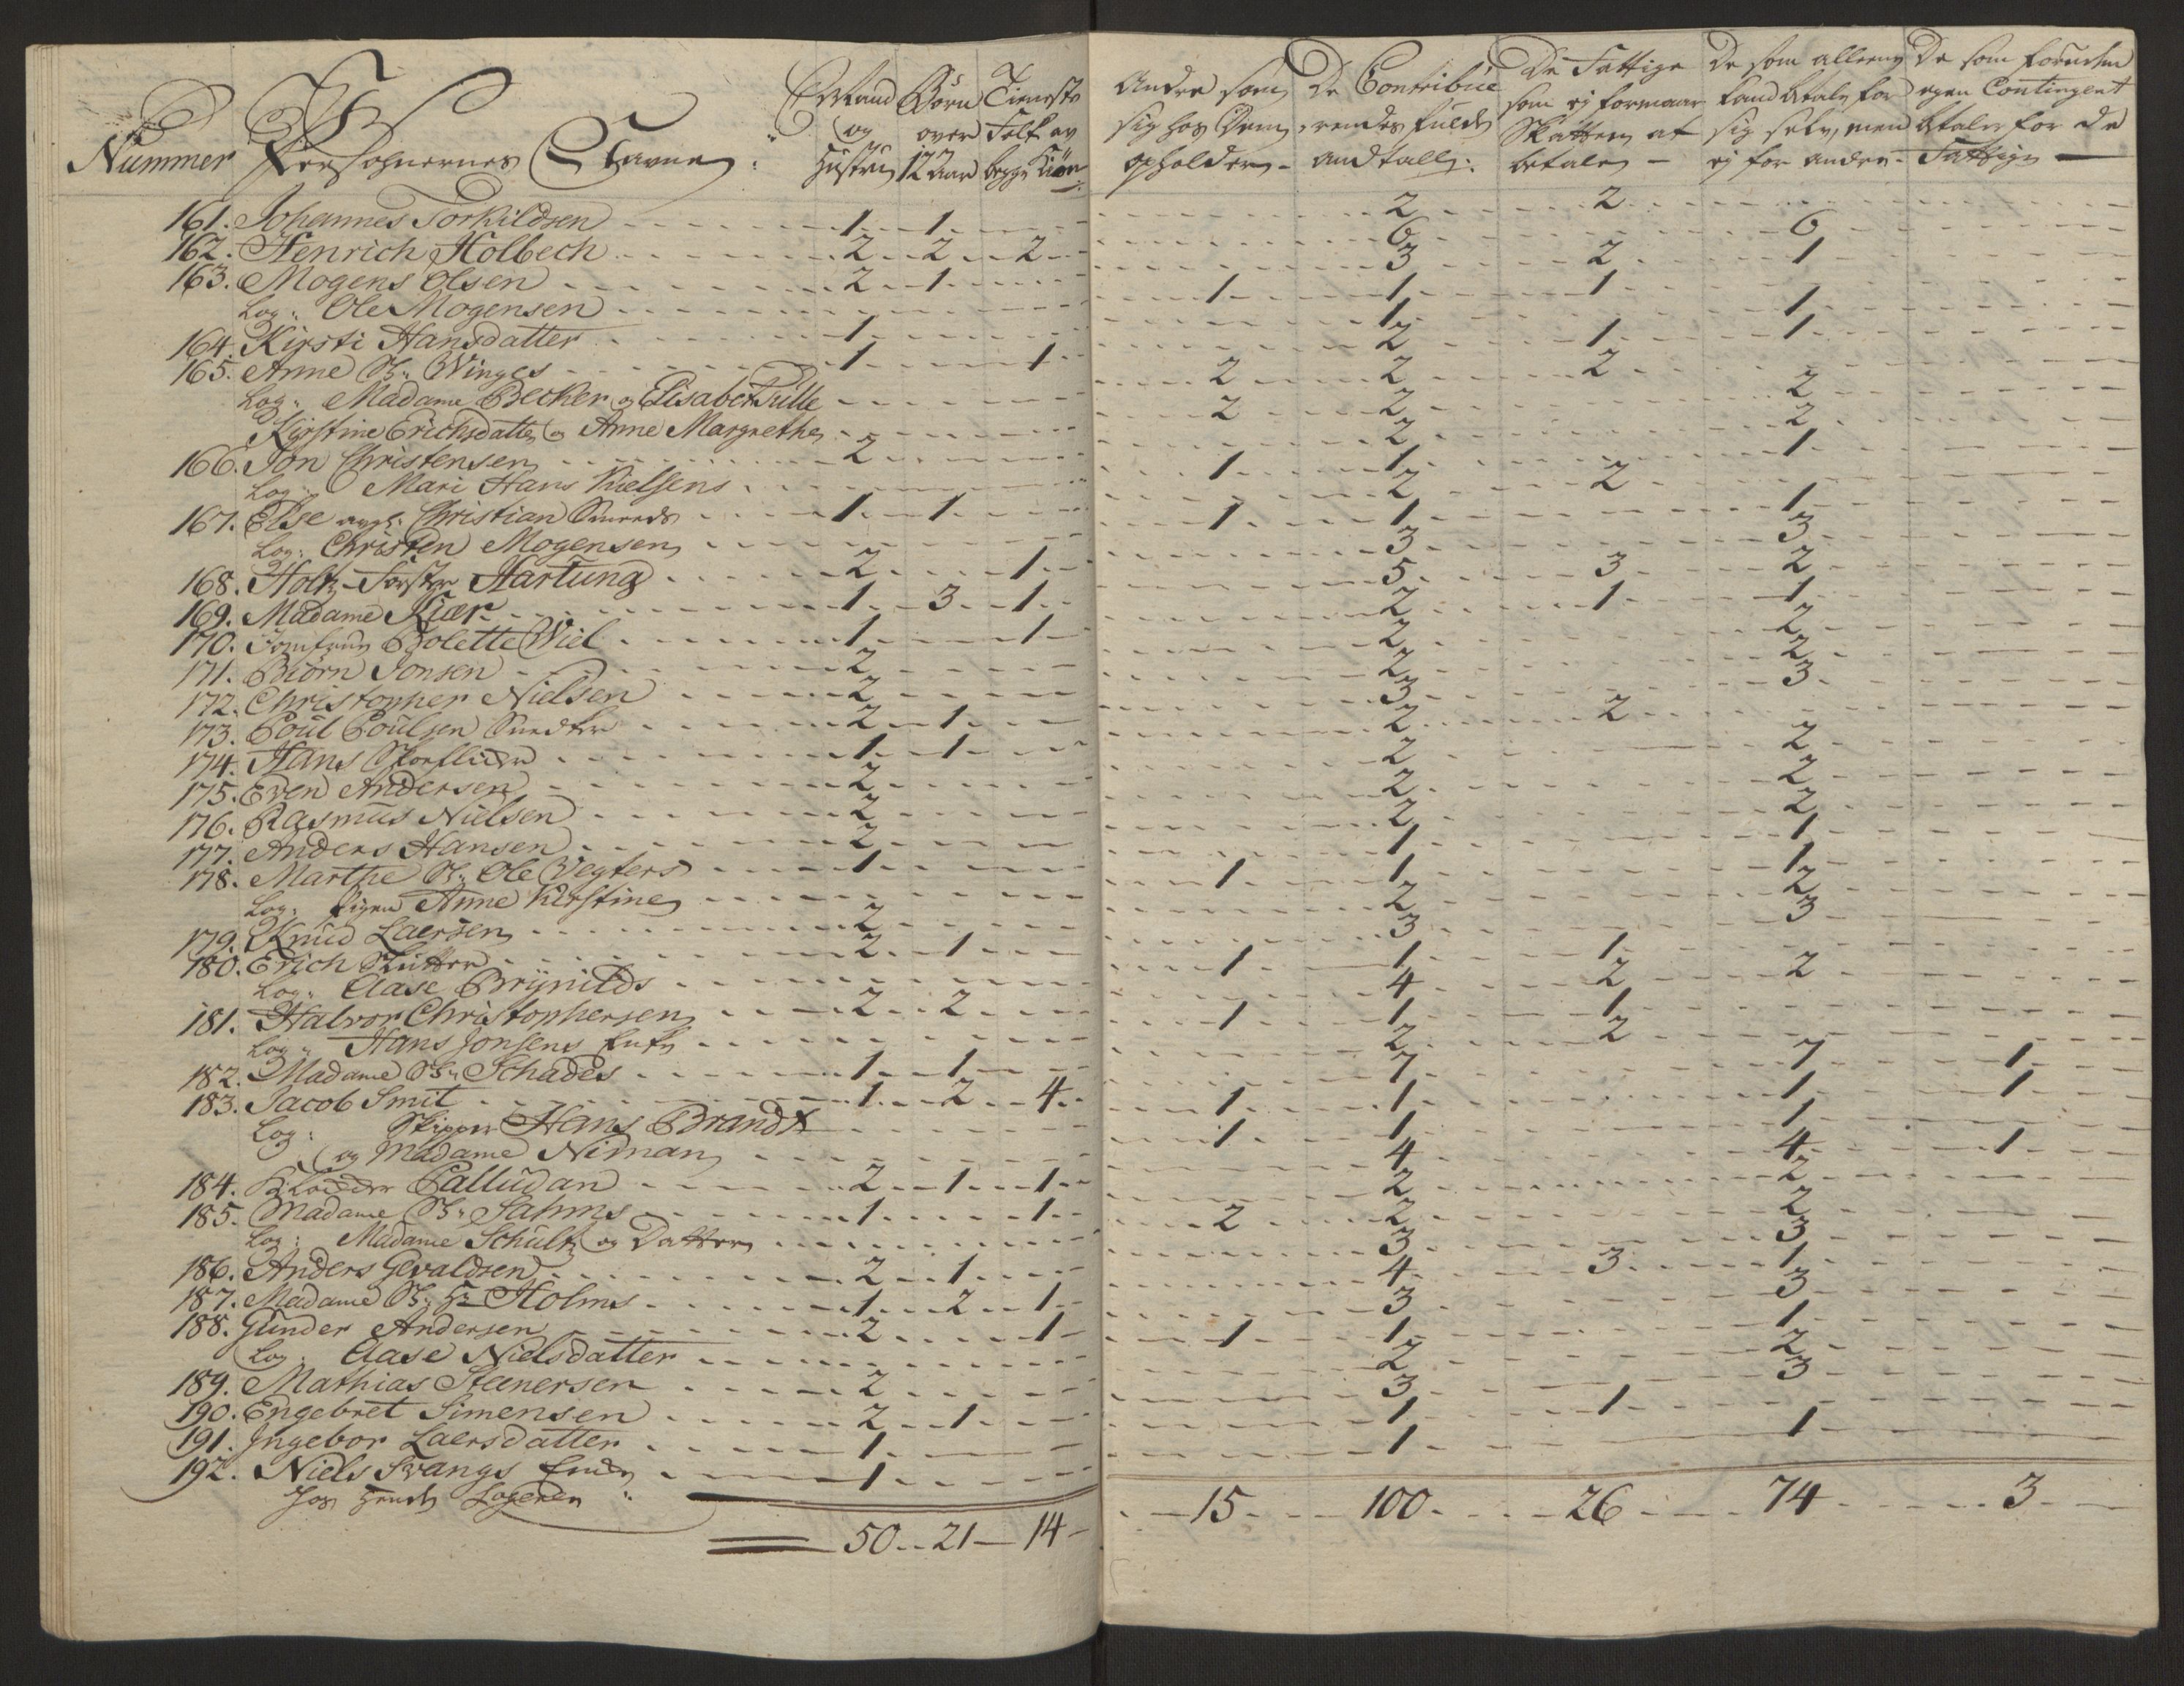 Nummer Persohnernes Navne
Mand og Hustru
Børn over 12 Aar
Tieneste Folk av begge Kiøn
Andre som sig hos Dem opholder
De Contribuerendes fulde Andtall
De Fattige som ej formaar Skatten at betale
De som alleene kand betale for sig selv, men ej for andre
De som foruden egen Contingent betaler for de Fattige
161. Johannes Torkildsen 1 1 2 2
162. Henrich Holbech 2 2 2 6 6
163. Mogens Olsen 2 1 3 2 1
Log: Ole Mogensen 1 1 1
164. Kirsti Hansdatter 1 1 1
165. Anne Winges 1 1 2 1 1
Log: Madame Becker og Elisabet Tulle 2 2 2
Kirstine Erichsdatter og Anne Margrethe 2 2 2
166. Jon Christensen 2 2 2
Log: Mari Hans Nielsens 1 1 1
167. Else Christian Smeds 1 1 2 2
Log: Christen Mogensen 1 1 1
168. Holtz-Førster Hartung 2 1 3 3
169. Madame Kiær 1 3 1 5 3 2
170. Jomfrue Bolette Wiel 1 1 2 1 1
171. Biørn Jonsen 2 2 2
172. Christopher Nielsen 2 2 2
173. Poul Poulsen Snedker 2 1 3 3
174. Hans Skoeflicker 1 1 2 2
175. Even Andersen 2 2 2
176. Rasmus Nielsen 2 2 2
177. Anders Hansen 2 2 2
178. Marthe Ole Vegters 1 1 1
Log: Pigen Anne Kirstine 1 1 1
179. Knud Laersen 2 2 2
180. Erich Skutter 2 1 3 3
Log: Aase Brynilds 1 1 1
181. Halvor Christophersen 2 2 4 2 2
Log: Hans Jonsens Enke 1 1 1
182. Madame Schades 1 1 2 2
183. Jacob Smit 1 2 4 7 7 1
Log: Skipper Hans Brandt 1 1 1 1
og Madame Niman 1 1 1
184. Palludan 2 1 1 4 4 1
185. Madame Sahms 1 1 2 2
Log: Madame Schultz og Datter 2 2 2
186. Anders Gevaldsen 2 1 3 3
187. Madame Holms 1 2 1 4 3 1
188. Gunder Andersen 2 1 3 3
Log: Aase Nielsdatter 1 1 1
189. Mathias Stenersen 2 2 2
190. Engebret Simensen 2 1 3 3
191. Ingebor Laersdatter 1 1 1
192. Niels Svangs Enke 1 1 1
Logerer
50 21 14 15 100 26 74 3